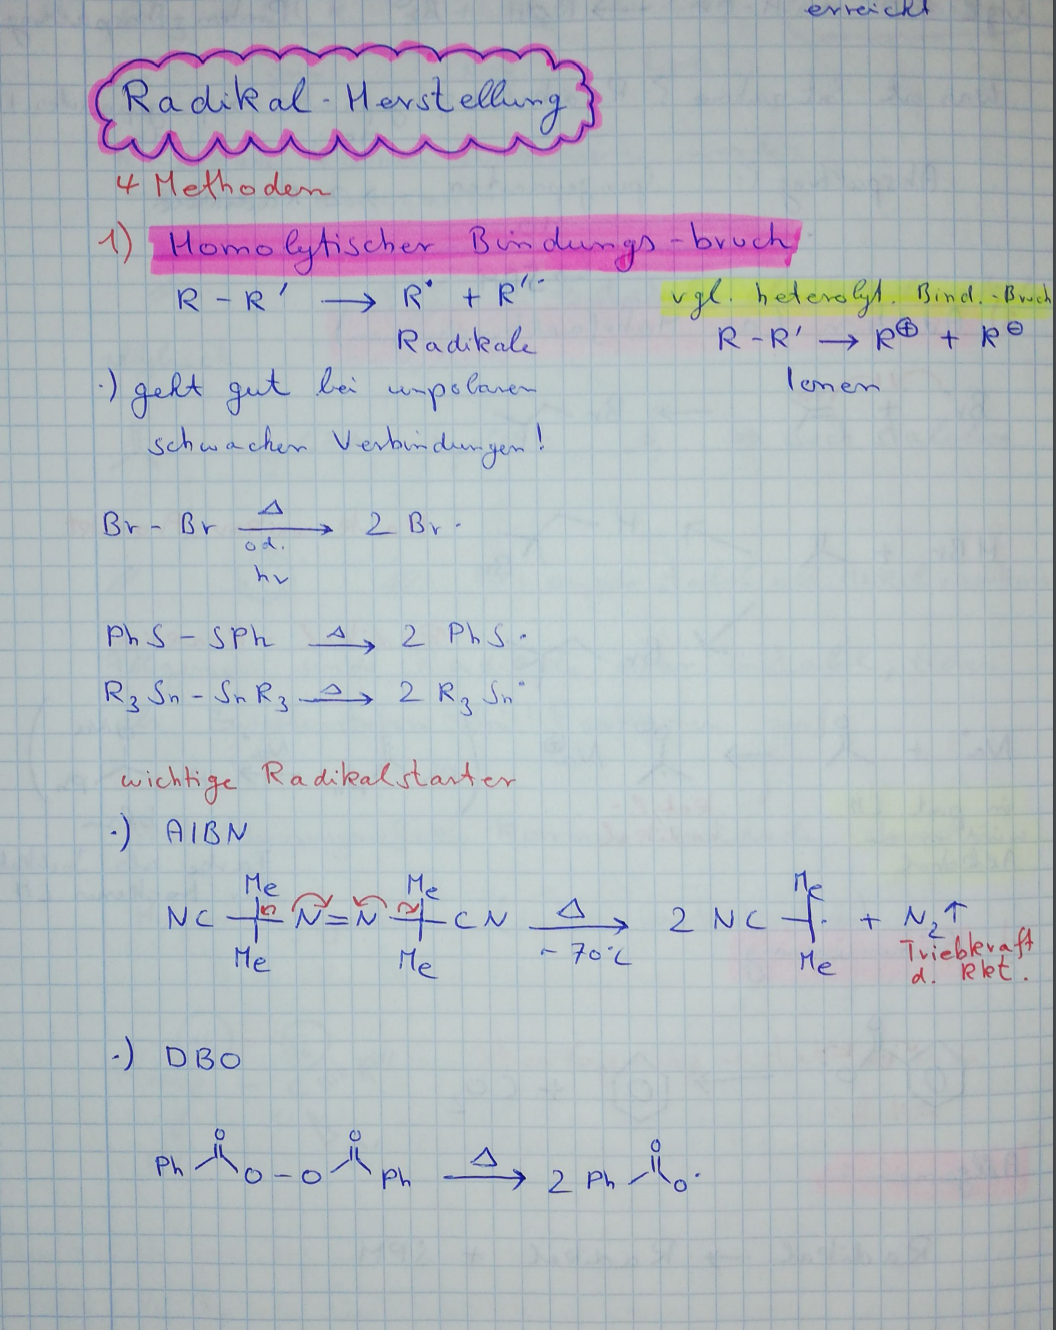 erreicht
Radikal-Herstellung
4 Methoden
1) Homolytischer Bindungs-bruch
R - R' ⟶ R˙ + R'˙
Radikale
vgl. heterolyt. Bind.-Bruch
R - R' ⟶ R⊕ + R⊖
Ionen
·) geht gut bei unpolaren
schwachen Verbindungen!
Br - Br ⟶ 2 Br·
Δ
od.
hν
PhS - SPh ⟶ 2 PhS·
Δ
R₃Sn - SnR₃ ⟶ 2 R₃Sn˙
Δ
wichtige Radikalstarter
·) AIBN
Me Me Me
NC N=N CN ⟶ 2 NC · + N₂↑
Δ
~ 70°C
Me Me Me
Triebkraft
d. Rkt.
·) DBO
O O O
Ph O - O Ph ⟶ 2 Ph O·
Δ